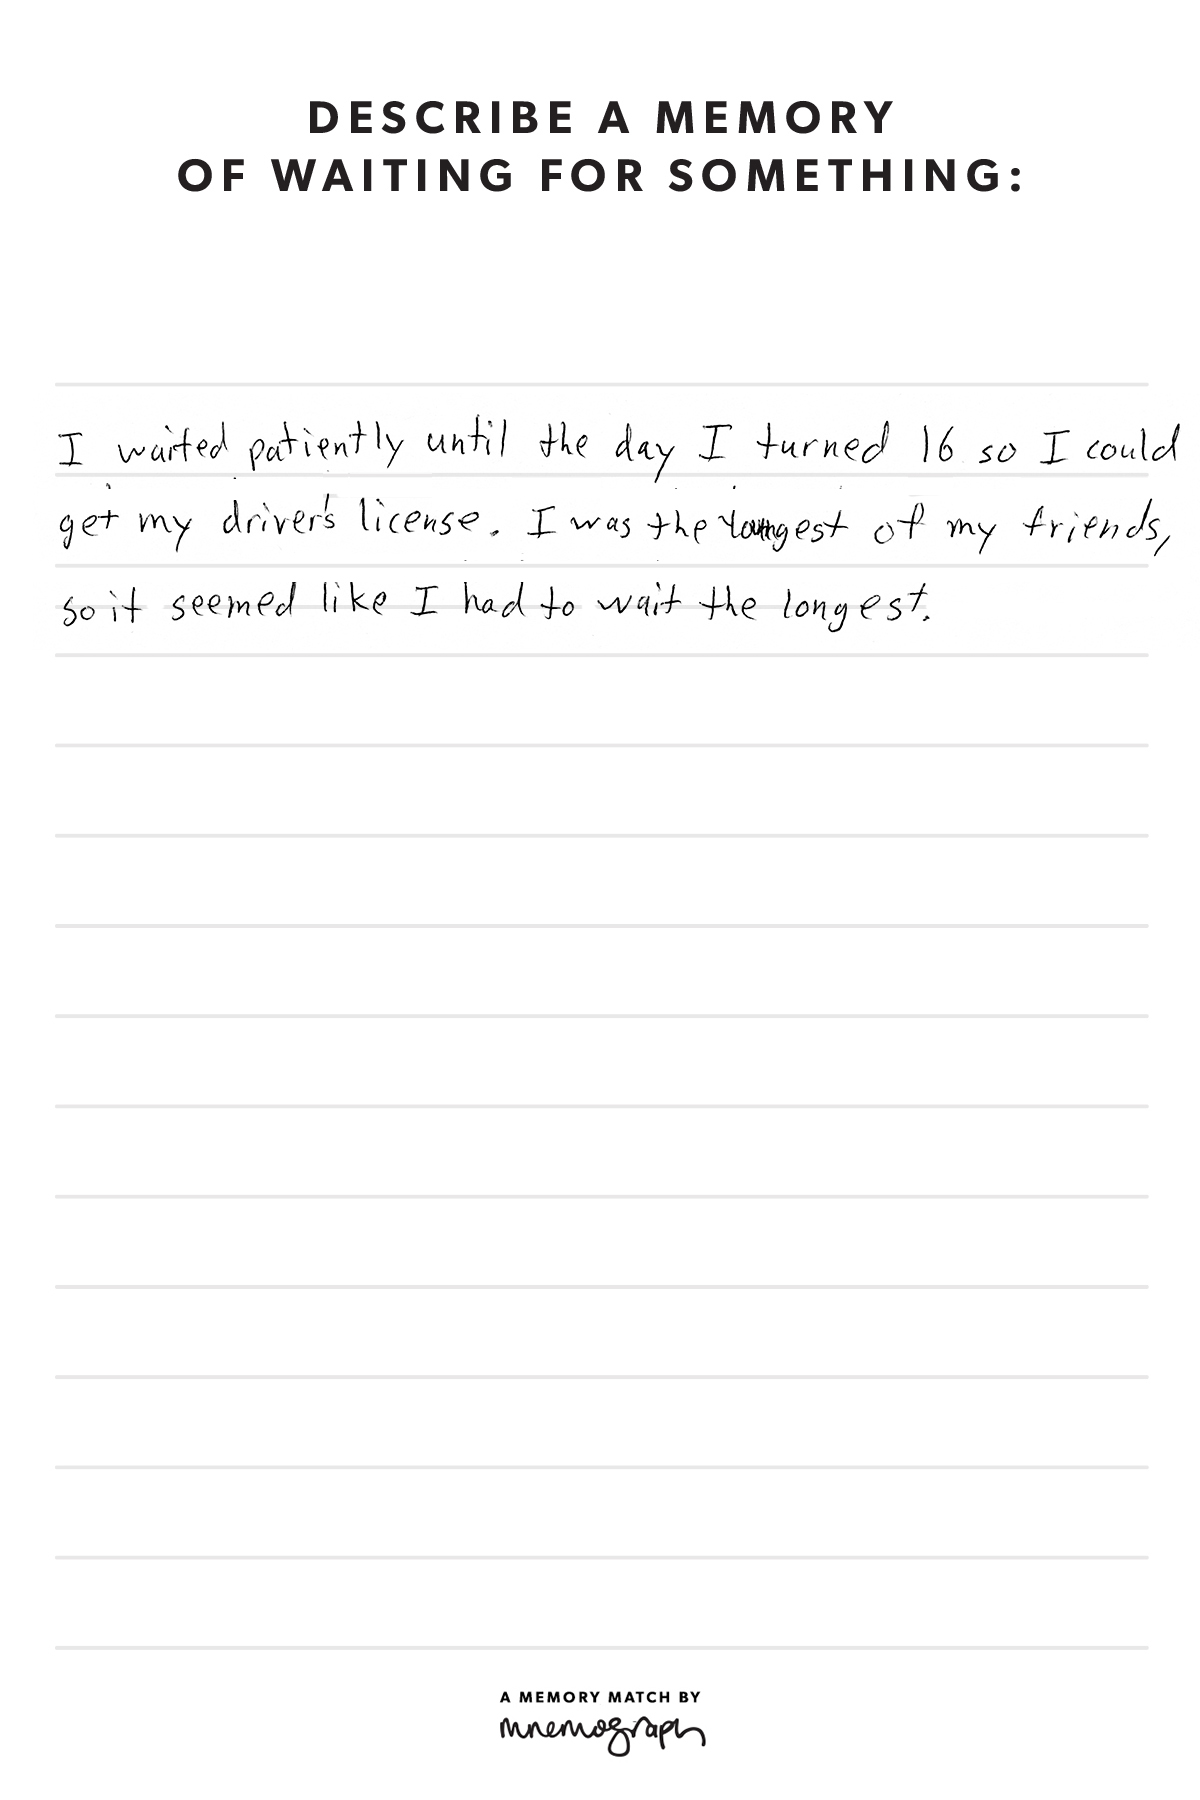 DESCRIBE A MEMORY
OF WAITING FOR SOMETHING:
I waited patiently until the day I turned 16 so I could
get my driver's license. I was the youngest of my friends,
so it seemed like I had to wait the longest.
A MEMORY MATCH BY
mnemograph